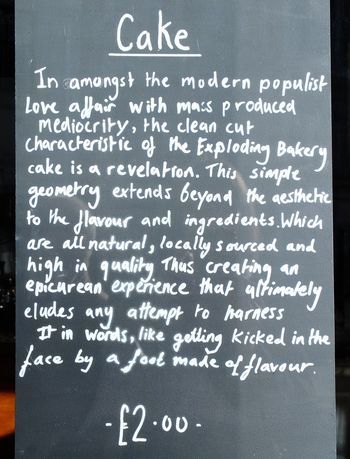 Cake
In amongst the modern populist
love affair with mass produced
mediocrity, the clean cut
characteristic of the Exploding Bakery
cake is a revelation. This simple
geometry extends beyond the aesthetic
to the flavour and ingredients. Which
are all natural, locally sourced and
high in quality Thus creating an
epicurean experience that ultimately
eludes any attempt to harness
It in words, like getting kicked in the
face by a foot made of flavour.
- £2.00 -